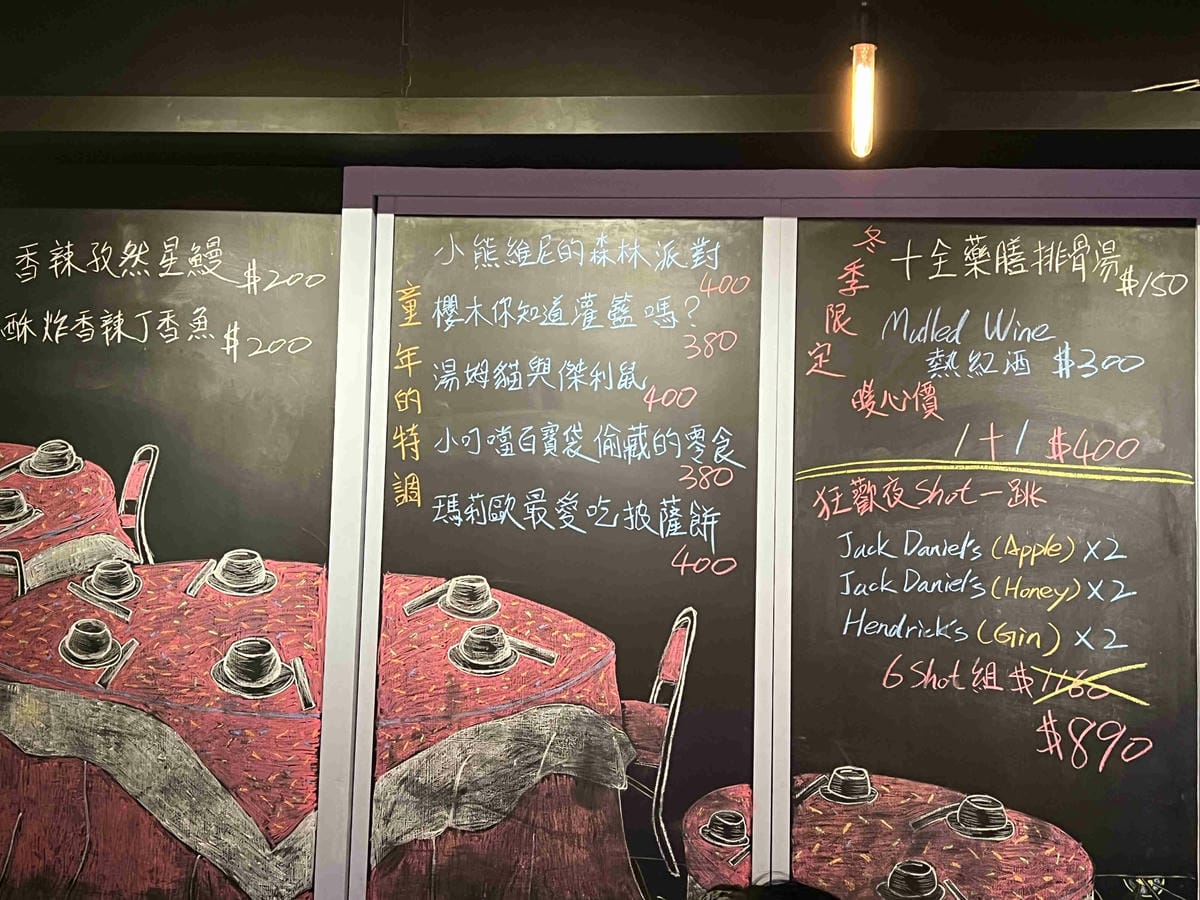 香辣孜然星鰻 $200
酥炸香辣丁香魚 $200
童年的特調
小熊維尼的森林派對
400
櫻木你知道灌籃嗎?
380
湯姆貓與傑利鼠
400
小叮噹百寶袋偷藏的零食
380
瑪莉歐最愛吃披薩餅
400
冬季限定
十全藥膳排骨湯 $150
Mulled Wine
熱紅酒 $300
暖心價
1+1 $400
狂歡夜Shot一跳
Jack Daniel's (Apple) x2
Jack Daniel's (Honey) x2
Hendrick's (Gin) x2
6 Shot組 $1160
$890